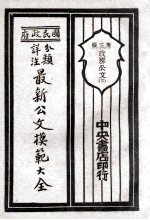 國民政府
分類
詳注
最新公文模範大全
第三編
政界公文
(下)
中央書店印行